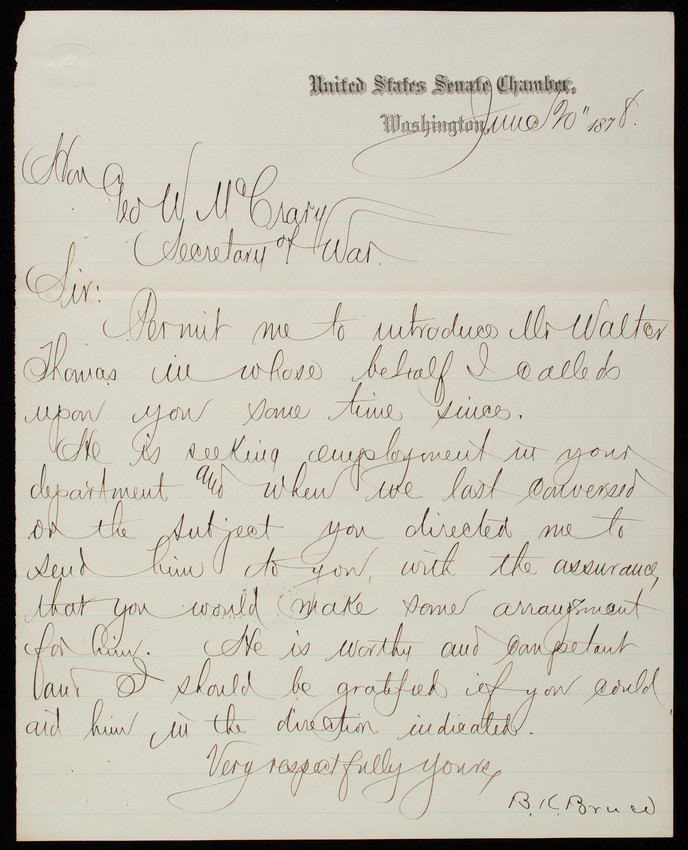 United States Senate Chamber,
Washington, June 20" 1878.
Hon
Geo W. McCrary
Secretary of War.
Sir:
Permit me to introduce Mr Walter
Thomas in whose behalf I called
upon you some time since.
He is seeking employment in your
department and when we last conversed
on the subject you directed me to
send him to you, with the assurance,
that you would make some arrangment
for him. He is worthy and competent
and I should be gratified if you could
aid him in the direction indicated.
Very respectfully yours,
B. K. Bruce